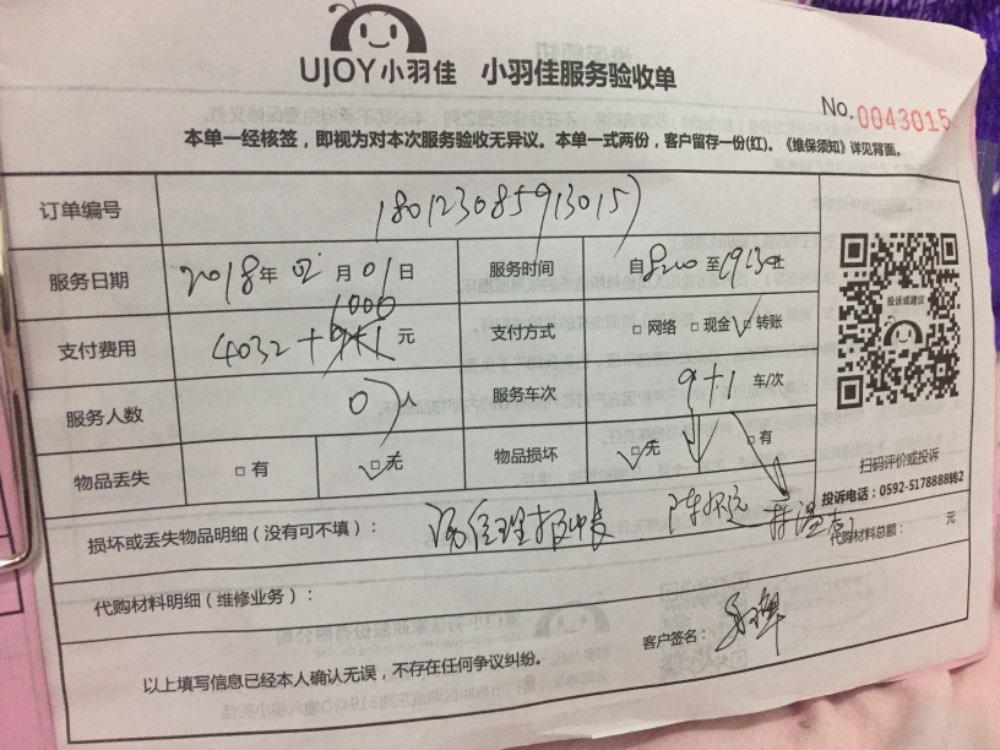 UJOY小羽佳 小羽佳服务验收单
No. 0043015
本单一经核签，即视为对本次服务验收无异议。本单一式两份，客户留存一份(红)。《维保须知》详见背面。
订单编号 180123085913015
服务日期 2018年 02月 01日 服务时间 自 8:00 至 19:30止
1000
支付费用 4032+ 元 支付方式 □网络 □现金 ☑转账
服务人数 0人 服务车次 9+1 车/次
物品丢失 □有 ☑无 物品损坏 ☑无 □有
投诉或建议
扫码评价或投诉
投诉电话：0592-5178888转2
损坏或丢失物品明细（没有可不填）：
代购材料总额： 元
代购材料明细（维修业务）：
客户签名：
以上填写信息已经本人确认无误，不存在任何争议纠纷。